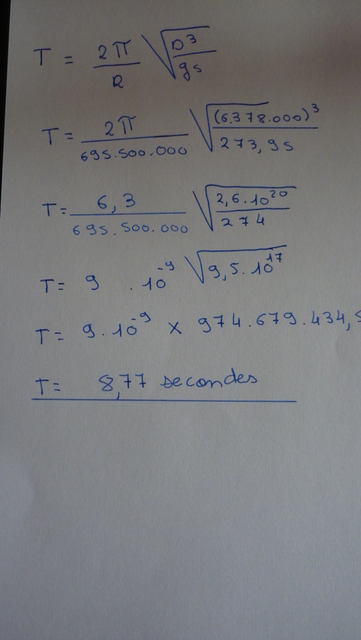 T = 2π/R √(D³/gs)
T = 2π/695.500.000 √((6.378.000)³/273,9s)
T = 6,3/695.500.000 √(2,6.10²⁰/274)
T = 9 . 10⁻⁹ √(9,5.10¹⁷)
T = 9.10⁻⁹ x 974.679.434,5
T = 8,77 secondes